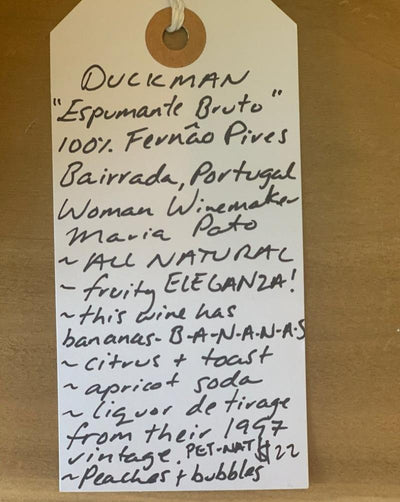 DUCKMAN
"Espumante Bruto"
100% Fernão Pires
Bairrada, Portugal
Woman Winemaker
Maria Pato
~ ALL NATURAL
~ fruity ELEGANZA!
~ this wine has
bananas - B-A-N-A-N-A-S
~ citrus + toast
~ apricot soda
~ liquor de tirage
from their 1997
vintage. PET-NAT $22
~ Peaches + bubbles